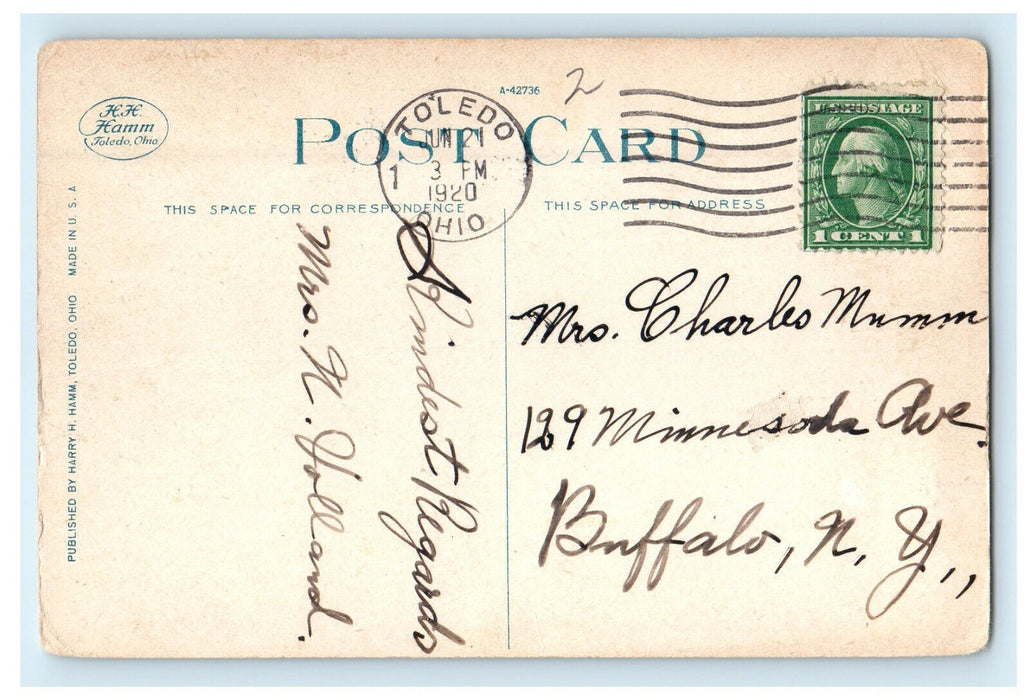 H.H.
Hamm
Toledo, Ohio
A-42736
2
POST CARD
TOLEDO
JUN 21
3 PM
1920
OHIO
1
U.S. POSTAGE
1 CENT 1
THIS SPACE FOR CORRESPONDENCE
THIS SPACE FOR ADDRESS
PUBLISHED BY HARRY H. HAMM, TOLEDO, OHIO MADE IN U. S. A
Kindest Regards
Mrs. N. Holland.
Mrs. Charles Mumm
129 Minnesoda Ave.
Buffalo, N. Y.,,